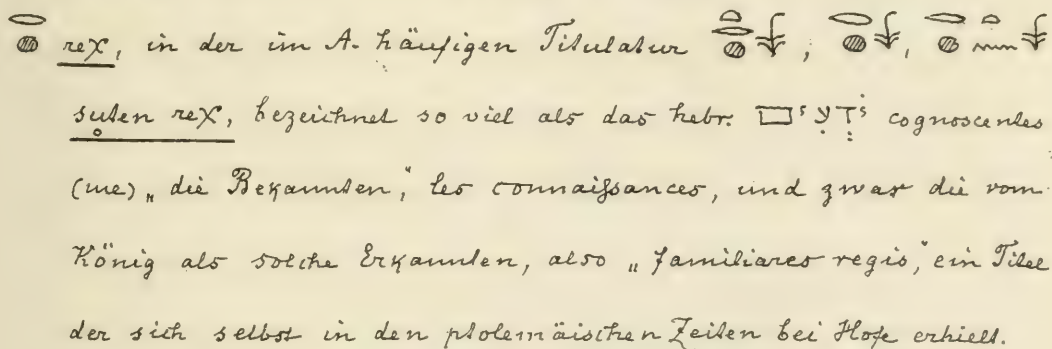 𓂋𓐍 reχ, in der im A. häufigen Titulatur 𓏏𓂋𓐍𓇓, 𓂋𓐍𓇓, 𓂋𓐍𓏏𓈖𓇓
suten reχ, bezeichnet so viel als das hebr. יֹדְעִים cognoscentes
(me) „die Bekannten,“ les connaiſsances, und zwar die vom
König als solche Erkannten, also „familiares regis“, ein Titel
der sich selbst in den ptolemäischen Zeiten bei Hofe erhielt.